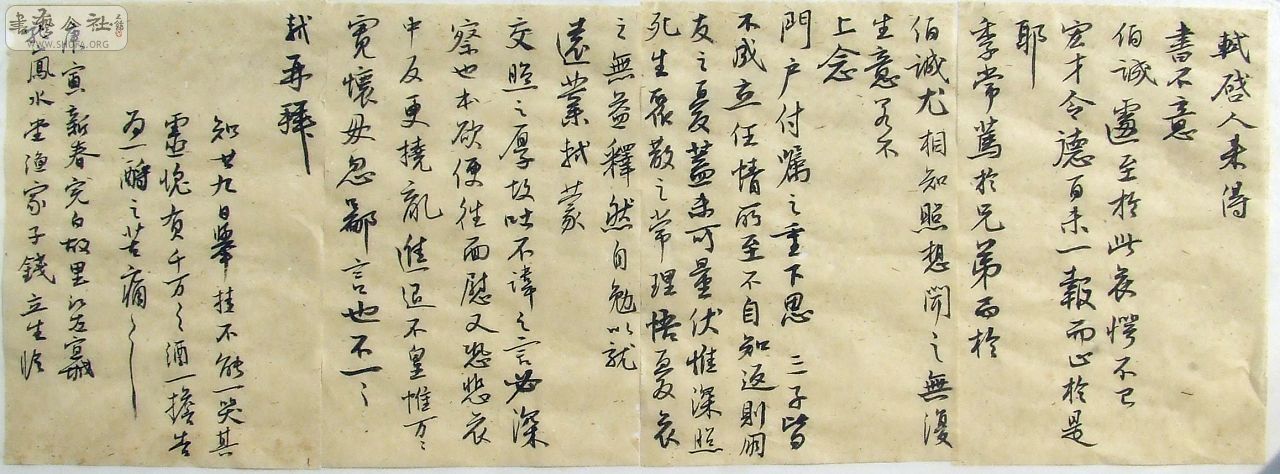 軾啓人来得
書不意
伯诚遽至於此哀愕不已
宏才令德百未一報而止於是
耶
季常篤於兄弟而於
伯诚尤相知照想闻之無復
生意若不
上念
門户付嘱之重下思三子皆
不成立任情所至不自知返則朋
友之憂蓋未可量伏惟深照
死生聚散之常理悟憂哀
之無益釋然自勉以就
遠業軾蒙
交照之厚故吐不諱之言必深
察也本欲便往面慰又恐悲哀
中反更撓亂進退不皇惟万〻
寬懷毋忽鄙言也不一〻
軾再拜
知廿九日舉挂不能一哭其
靈愧负千万〻酒一擔告
为一酹之苦痛〻
庚寅新春完白故里江左宣城
鳳水堂渔家子錢立生临
書法社
WWW.SHUFA.ORG